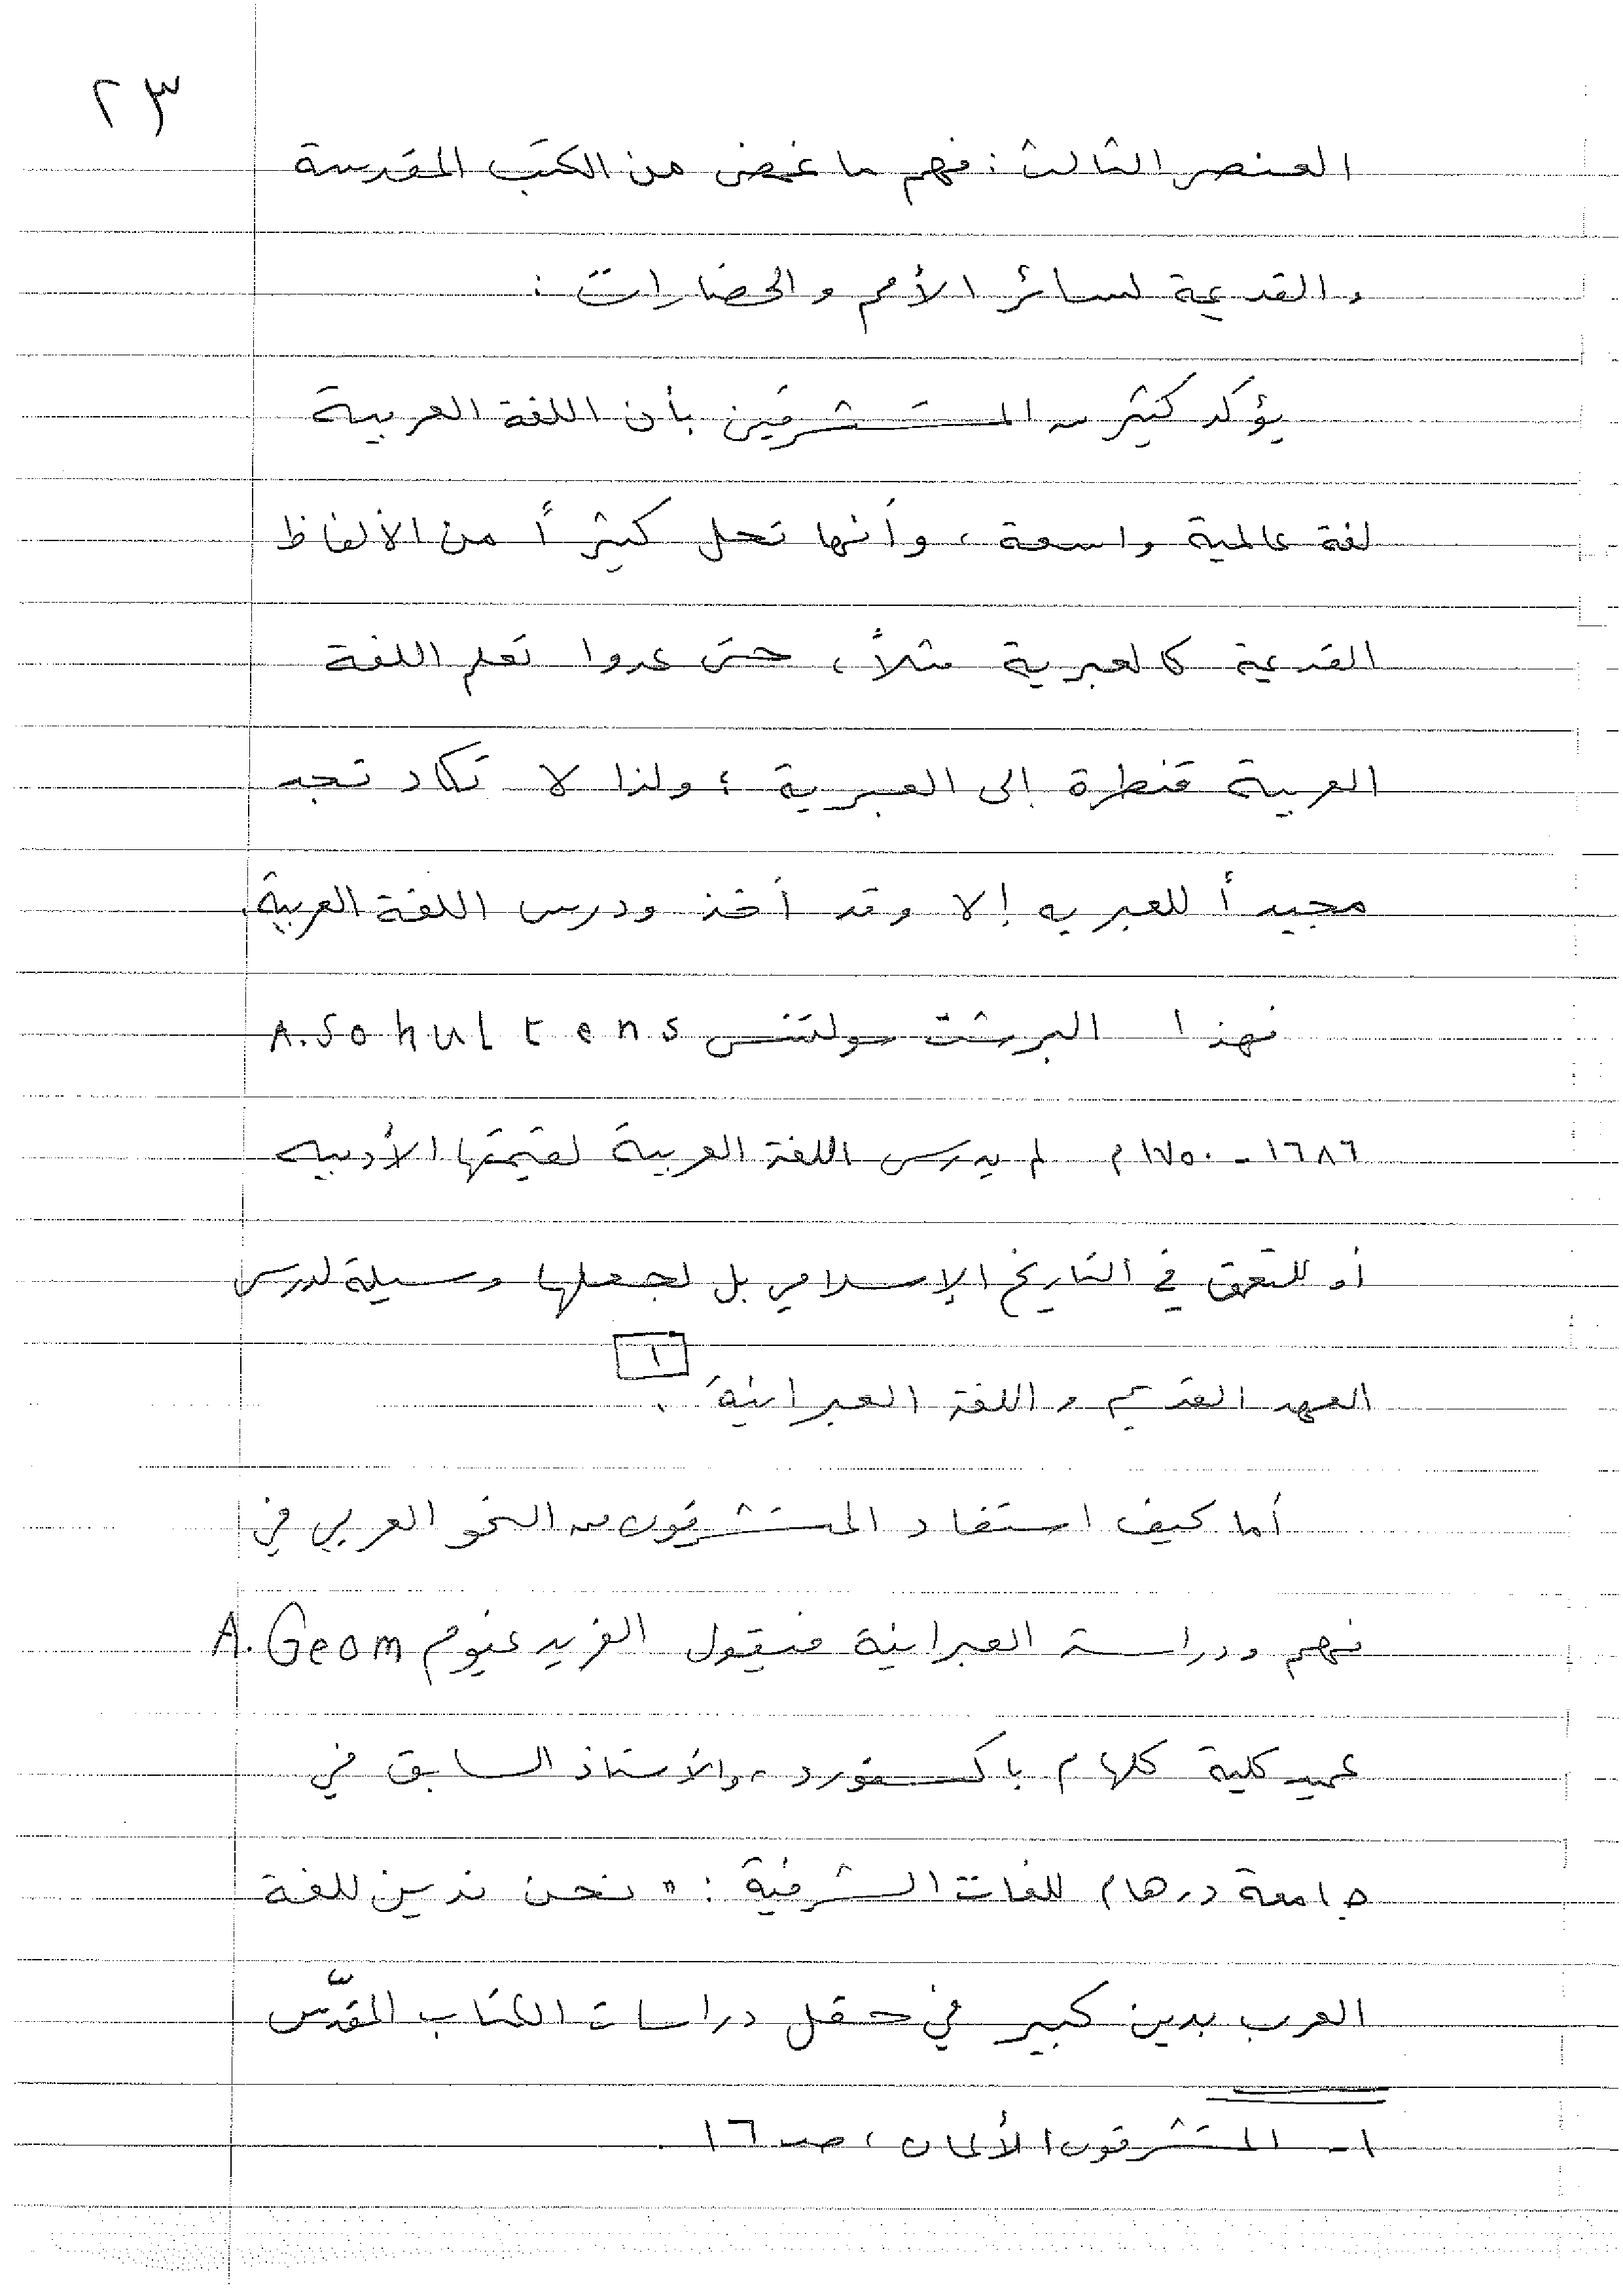 ٢٣
العنصر الثالث : فهم ما غمض من الكتب المقدسة
والقديمة لسائر الأمم والحضارات :
يؤكد كثير من المستشرقين بأن اللغة العربية
لغة عالمية واسعة ، وأنها تحل كثيراً من الألفاظ
القديمة كالعبرية مثلاً ، حتى عدوا تعلم اللغة
العربية قنطرة إلى العبرية ؛ ولذا لا تكاد تجد
مجيداً للعبريه إلا وقد أخذ ودرس اللغة العربية .
فهذا البرشت سولتنس A. Sohultens
١٦٨٦ - ١٧٥٠م لم يدرس اللغة العربية لقيمتها الأدبيه
أو للتعمق في التاريخ الإسلامي بل لجعلها وسيلة لدرس
العهد القديم واللغة العبرانية . [١]
أما كيف استفاد المستشرقون من النحو العربي في
فهم ودراسة العبرانية فيقول الفريد غيوم A. Geom
عميد كلية كلهام باكسفورد ، والأستاذ السابق في
جامعة درهام للغات الشرقية : " نحن ندين للغة
العرب بدين كبير في حقل دراسات الكتاب المقدّس
١- المستشرقون الألمان ، صـ ١٦ .